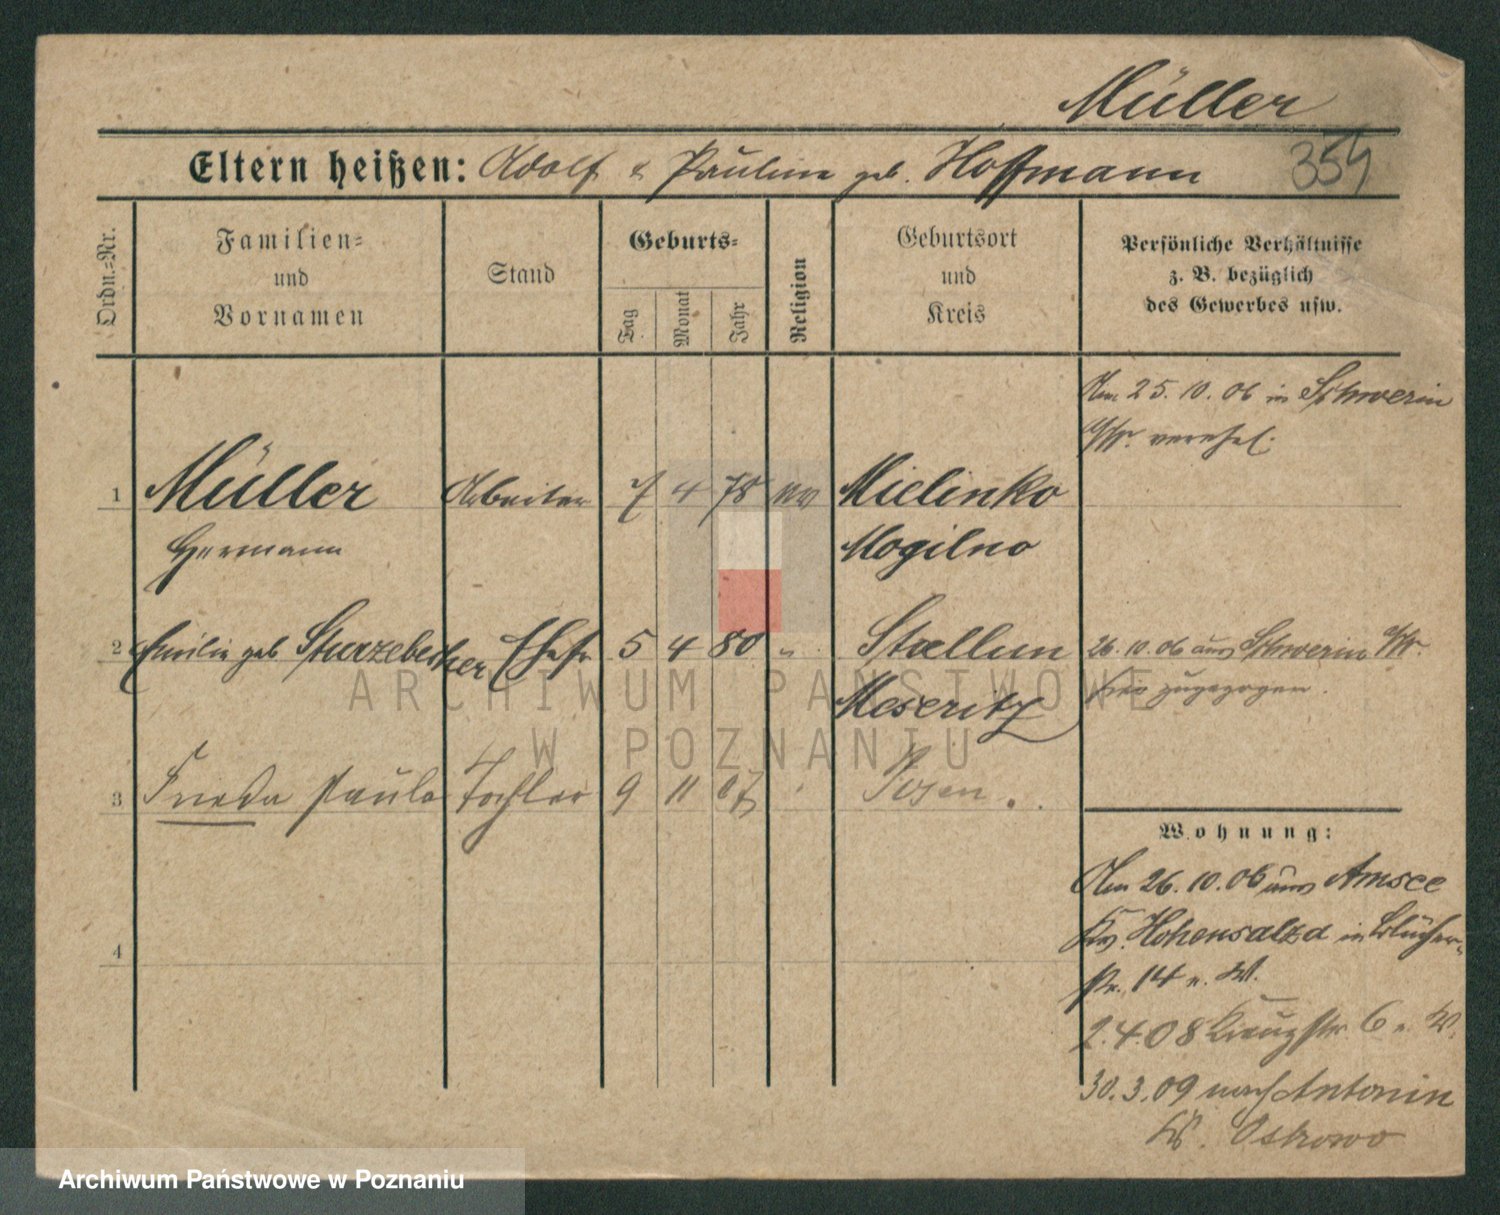 Müller
Eltern heißen: Adolf & Pauline geb. Hoffmann
354
Ordn.-Nr.
Familien-
und
Vornamen
Stand
Geburts-
Tag
Monat
Jahr
Religion
Geburtsort
und
Kreis
Persönliche Verhältnisse
z. B. bezüglich
des Gewerbes usw.
Am 25.10.06 in Schwerin
a/W. verehel.
1 Müller Arbeiter 7 4 78 ev Mielinko
Hermann Mogilno
2 Emilie geb Sturzebecher Ehefr 5 4 80 " Stollun
26.10.06 aus Schwerin a/W.
Meseritz
zugezogen.
3 Frieda Paula Tochter 9 11 07 " Posen.
Wohnung:
Am 26.10.06 aus Amsee
Kr. Hohensalza in Blücher-
str. 14 e. W.
2.4.08 Kreuzstr 6 e. W.
30.3.09 nach Antonin
Kr. Ostrowo
4
ARCHIWUM PAŃSTWOWE
W POZNANIU
Archiwum Państwowe w Poznaniu